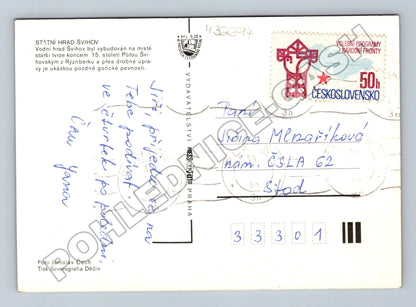 STÁTNÍ HRAD ŠVIHOV
Vodní hrad Švihov byl vybudován na místě
starší tvrze koncem 15. století Půtou Švihovským
z Rýznberku a přes drobné úpravy
je ukázkou pozdně gotické pevnosti.
Jiří, přijedu
Tebe podívat
ve čtvrtek po poledni.
Čau Jana
Foto Jaroslav Čech
Tisk Severografia Děčín
VYDAVATELSTVÍ PRESSFOTO PRAHA
VOLEBNÍ PROGRAMY
NÁRODNÍ FRONTY
50h
ČESKOSLOVENSKO
Jiřina Mlnaříková
nám. ČSLA 62
Stod
33301
POHLEDNICE.CASH